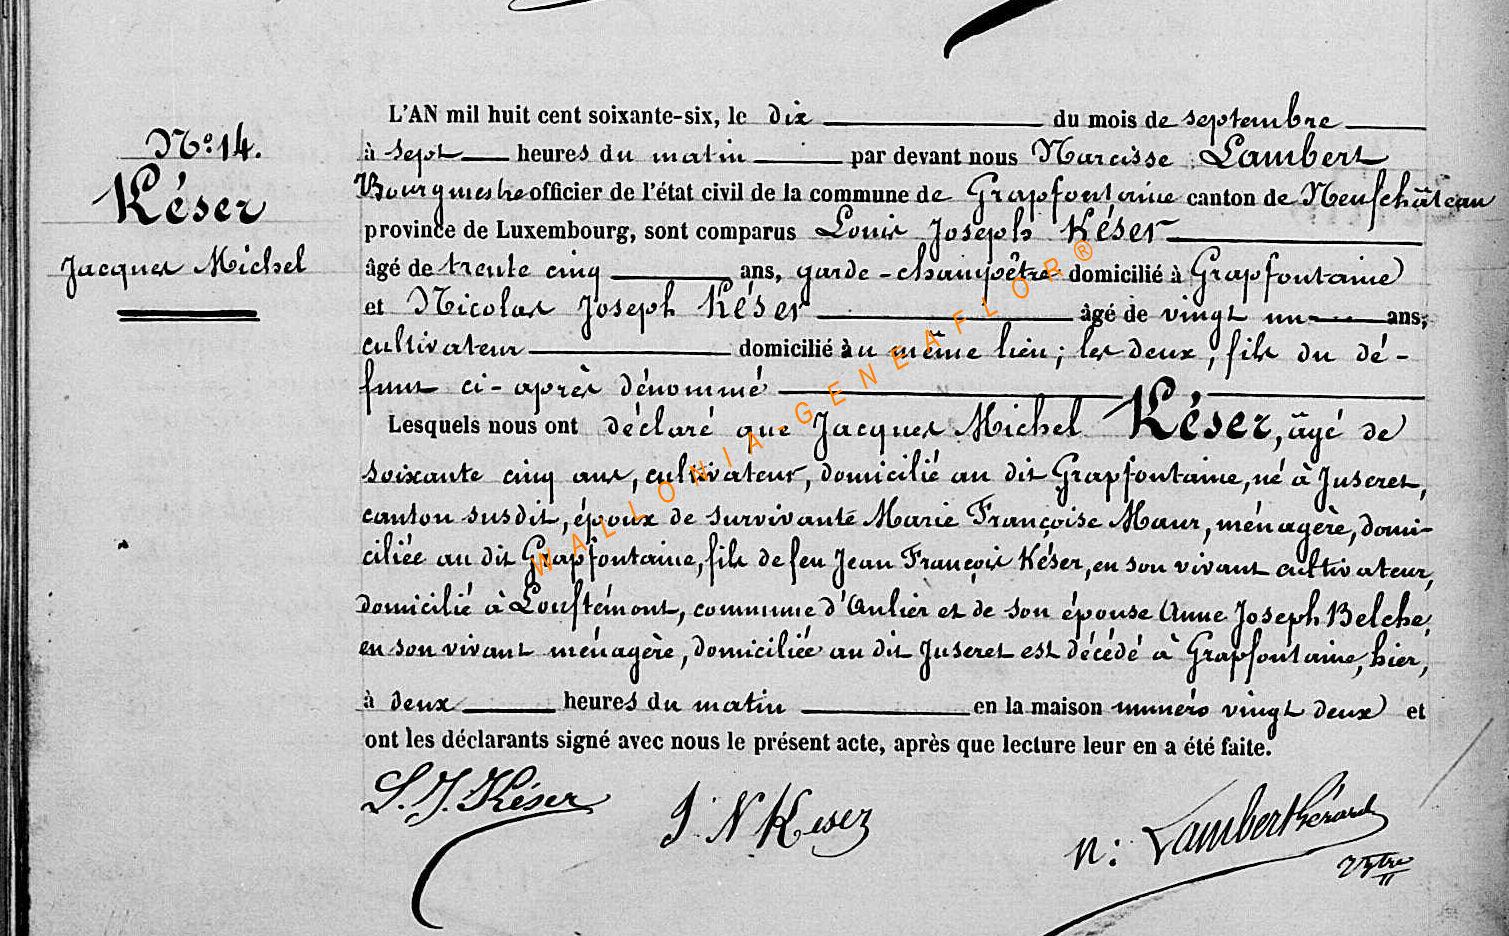 N° 14.
Késer
Jacques Michel
L'AN mil huit cent soixante-six, le dix du mois de septembre
à sept heures du matin par devant nous Narcisse Lambert
Bourgmestre officier de l'état civil de la commune de Grapfontaine canton de Neufchâteau
province de Luxembourg, sont comparus Louis Joseph Késer
âgé de trente cinq ans, garde-champêtre domicilié à Grapfontaine
et Nicolas Joseph Késer âgé de vingt un ans,
cultivateur domicilié au même lieu; les deux, fils du dé-
funt ci-après dénommé
Lesquels nous ont déclaré que Jacques Michel Késer, âgé de
soixante cinq ans, cultivateur, domicilié au dit Grapfontaine, né à Juseret,
canton susdit, époux de survivante Marie Françoise Maur, ménagère, domi-
ciliée au dit Grapfontaine, fils de feu Jean François Késer, en son vivant cultivateur,
domicilié à Louftémont, commune d'Anlier et de son épouse Anne Joseph Belche,
en son vivant ménagère, domiciliée au dit Juseret est décédé à Grapfontaine, hier,
à deux heures du matin en la maison numéro vingt deux et
ont les déclarants signé avec nous le présent acte, après que lecture leur en a été faite.
L. J. Késer J. N Keser n: Lambert Gérard
WALLONIA-GENEAFLOR®